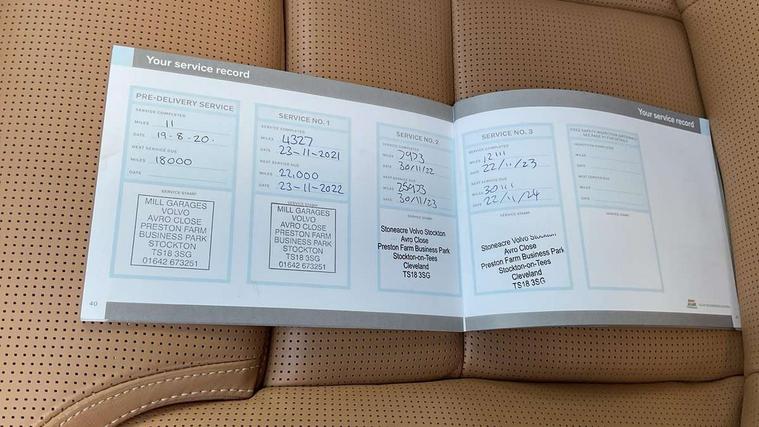 Your service record
PRE-DELIVERY SERVICE
SERVICE COMPLETED
MILES 11
DATE 19-8-20.
NEXT SERVICE DUE
MILES 18000
DATE
SERVICE STAMP
MILL GARAGES
VOLVO
AVRO CLOSE
PRESTON FARM
BUSINESS PARK
STOCKTON
TS18 3SG
01642 673251
40
SERVICE NO. 1
SERVICE COMPLETED
MILES 4327
DATE 23-11-2021
NEXT SERVICE DUE
MILES 22,000
DATE 23-11-2022
SERVICE STAMP
MILL GARAGES
VOLVO
AVRO CLOSE
PRESTON FARM
BUSINESS PARK
STOCKTON
TS18 3SG
01642 673251
SERVICE NO. 2
SERVICE COMPLETED
MILES 7973
DATE 30/11/22
NEXT SERVICE DUE
MILES 25973
DATE 30/11/23
SERVICE STAMP
Stoneacre Volvo Stockton
Avro Close
Preston Farm Business Park
Stockton-on-Tees
Cleveland
TS18 3SG
Your service record
SERVICE NO. 3
SERVICE COMPLETED
MILES 12111
DATE 22/11/23
NEXT SERVICE DUE
MILES 30111
DATE 22/11/24
SERVICE STAMP
Stoneacre Volvo Stockton
Avro Close
Preston Farm Business Park
Stockton-on-Tees
Cleveland
TS18 3SG
MILES
DATE
MILES
DATE
SERVICE STAMP